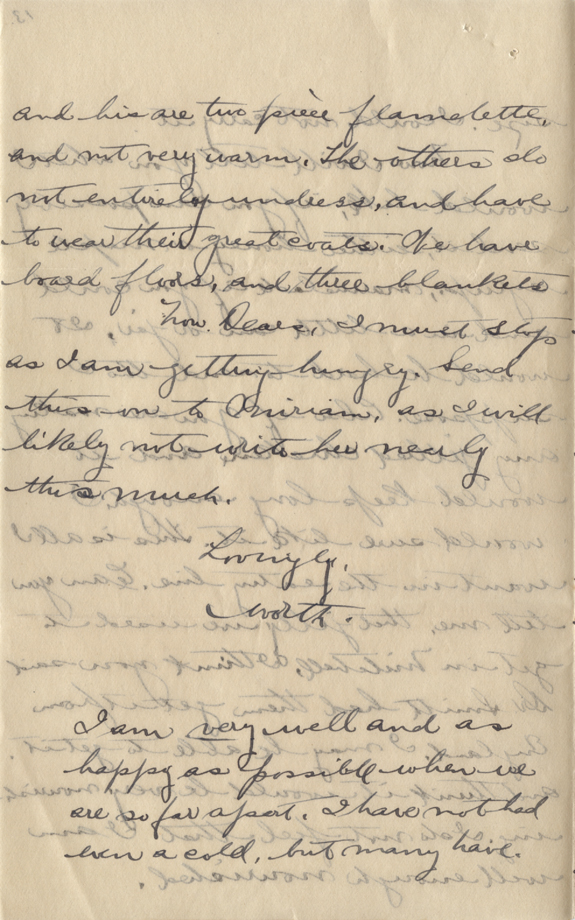 and his are two pièce flannelette,
and not very warm. The others do
not entirely undress, and have
to wear their great coats. We have
board floors, and three blankets
Now Dears, I must stop
as I am getting hungry. Send
this on to Miriam, as I will
likely not write her nearly
this much.
Lovingly,
Worth.
I am very well and as
happy as possible when we
are so far apart. I have not had
even a cold, but many have.